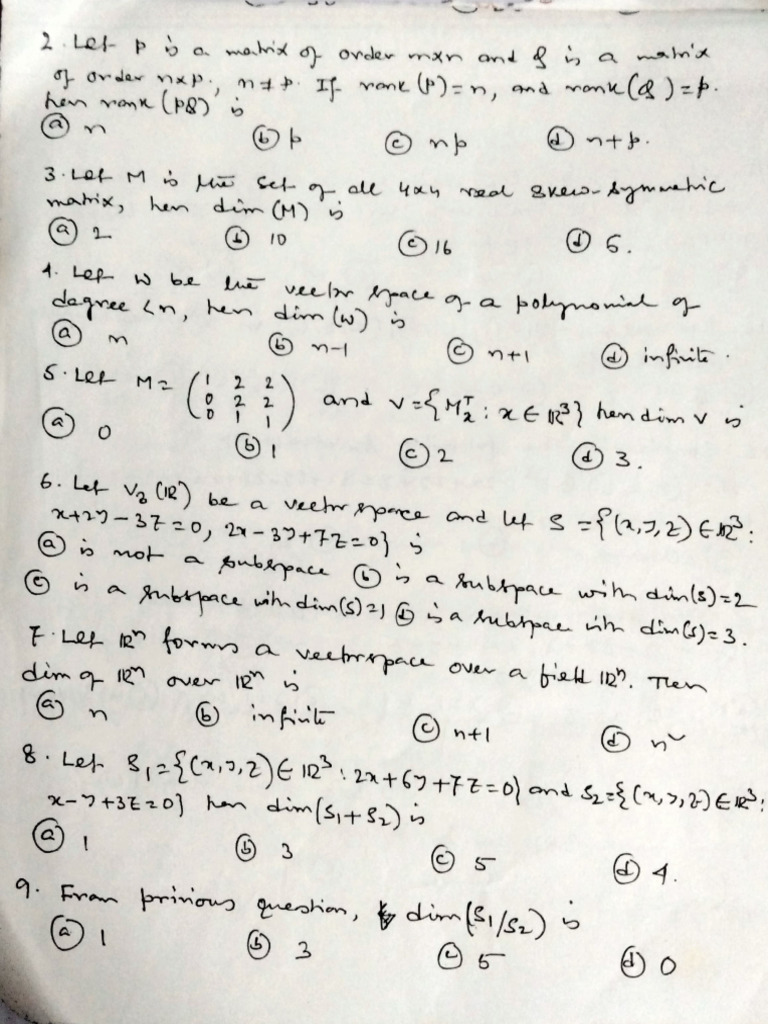 2. Let P is a matrix of order mxn and Q is a matrix
of order nxp., n≠p. If rank(P)=n, and rank(Q)=p.
hen rank(PQ) is
(a) n (b) p (c) np (d) n+p.
3. Let M is the set of all 4x4 real skew-symmetric
matrix, hen dim(M) is
(a) 2 (b) 10 (c) 16 (d) 6.
4. Let W be the vector space of a polynomial of
degree <n, hen dim(W) is
(a) n (b) n-1 (c) n+1 (d) infinite.
5. Let M = (1 2 2
0 2 2
0 1 1) and V={Mxᵀ : x ∈ ℝ³} hen dim V is
(a) 0 (b) 1 (c) 2 (d) 3.
6. Let V₃(ℝ) be a vector space and let S = {(x,y,z) ∈ ℝ³:
x+2y-3z=0, 2x-3y+7z=0} is
(a) is not a subspace (b) is a subspace with dim(S)=2
(c) is a subspace with dim(S)=1 (d) is a subspace with dim(S)=3.
7. Let ℝⁿ forms a vector space over a field ℝⁿ. Then
dim of ℝⁿ over ℝⁿ is
(a) n (b) infinite (c) n+1 (d) n²
8. Let S₁={(x,y,z)∈ℝ³: 2x+6y+7z=0} and S₂={(x,y,z)∈ℝ³:
x-y+3z=0} hen dim(S₁+S₂) is
(a) 1 (b) 3 (c) 5 (d) 4.
9. From privious question, dim(S₁/S₂) is
(a) 1 (b) 3 (c) 5 (d) 0